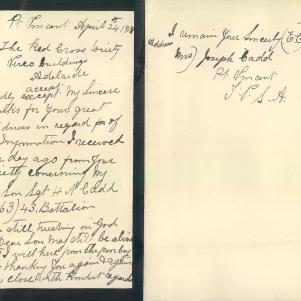 Pt Vincent April 24th 1918
The Red Cross Society
Verco Buildings
Adelaide
accept
except My Sincere
for your great
in regard for of
Information I received
day ago from your
concerning My
Son Sgt H A Cadd
63) 43. Battalion
still trusting on God
Dear Son May still be alive
I will here from the poor boy
thanking you again & again
close with Kindest regards
I remain Your Sincerely
Address Mrs) Joseph Cadd
Pt. Vincent
Y. P. S. A.